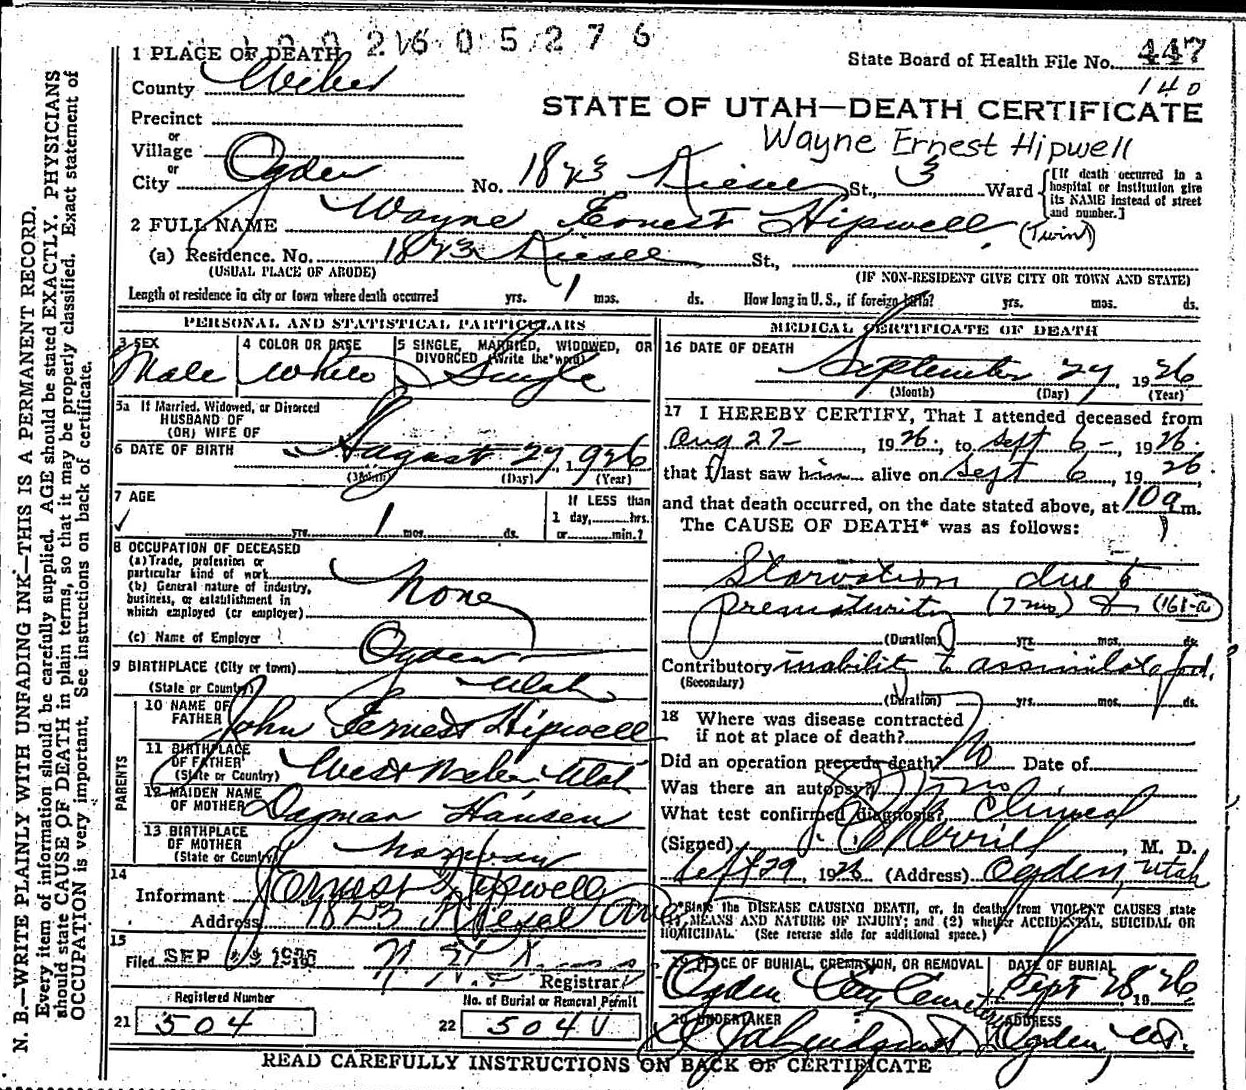 2 6 0 5 2 7 6
1 PLACE OF DEATH
State Board of Health File No. 447
County Weber
140
STATE OF UTAH—DEATH CERTIFICATE
Precinct
Wayne Ernest Hipwell
or
Village
or
City Ogden No. 1823 Kiesel St., 3 Ward
[If death occurred in a hospital or institution give its NAME instead of street and number.]
2 FULL NAME Wayne Ernest Hipwell. (Twin)
(a) Residence. No. 1823 Kiesel St.,
(USUAL PLACE OF ABODE) (IF NON-RESIDENT GIVE CITY OR TOWN AND STATE)
Length of residence in city or town where death occurred yrs. 1 mos. ds. How long in U. S., if foreign birth? yrs. mos. ds.
PERSONAL AND STATISTICAL PARTICULARS
3 SEX
Male
4 COLOR OR RACE
White
5 SINGLE, MARRIED, WIDOWED, OR
DIVORCED (Write the word)
Single
5a If Married, Widowed, or Divorced
HUSBAND OF
(OR) WIFE OF
6 DATE OF BIRTH August 27, 1926
(Month) (Day) (Year)
7 AGE
yrs. 1 mos. ds.
If LESS than
1 day, hrs.
or min.?
8 OCCUPATION OF DECEASED
(a) Trade, profession or
particular kind of work
(b) General nature of industry,
business, or establishment in
which employed (or employer)
None
(c) Name of Employer
9 BIRTHPLACE (City or town) Ogden
(State or Country) Utah
PARENTS
10 NAME OF
FATHER John Ernest Hipwell
11 BIRTHPLACE
OF FATHER
(State or Country) West Weber Utah
12 MAIDEN NAME
OF MOTHER Dagman Hansen
13 BIRTHPLACE
OF MOTHER
(State or Country) Norway
14
Informant Ernest Hipwell
Address 1823 Kiesel Ave
15
Filed SEP 1926
Registrar
Registered Number
21 504
No. of Burial or Removal Permit
22 504 V
MEDICAL CERTIFICATE OF DEATH
16 DATE OF DEATH
September 27 1926
(Month) (Day) (Year)
17 I HEREBY CERTIFY, That I attended deceased from
Aug 27- 1926. to Sept 6- 1926.
that I last saw him alive on Sept 6, 1926.
and that death occurred, on the date stated above, at 10 a m.
The CAUSE OF DEATH* was as follows:
Starvation due to
prematurity (7 mo) & (161-a)
(Duration) yrs. mos. ds.
Contributory inability to assimilate food.
(Secondary)
(Duration) yrs. mos. ds.
18 Where was disease contracted
if not at place of death?
Did an operation precede death? No Date of
Was there an autopsy? no
What test confirmed diagnosis? Clinical
(Signed) Merrill, M. D.
Sept 29, 1926 (Address) Ogden, Utah
*State the DISEASE CAUSING DEATH, or, in deaths from VIOLENT CAUSES state
(1) MEANS AND NATURE OF INJURY; and (2) whether ACCIDENTAL, SUICIDAL OR
HOMICIDAL. (See reverse side for additional space.)
19 PLACE OF BURIAL, CREMATION, OR REMOVAL
Ogden City Cemetery
DATE OF BURIAL
Sept 28 1926
20 UNDERTAKER
Lindquist
ADDRESS
Ogden, Ut.
READ CAREFULLY INSTRUCTIONS ON BACK OF CERTIFICATE
N. B.—WRITE PLAINLY WITH UNFADING INK—THIS IS A PERMANENT RECORD.
Every item of information should be carefully supplied. AGE should be stated EXACTLY. PHYSICIANS
should state CAUSE OF DEATH in plain terms, so that it may be properly classified. Exact statement of
OCCUPATION is very important. See instructions on back of certificate.